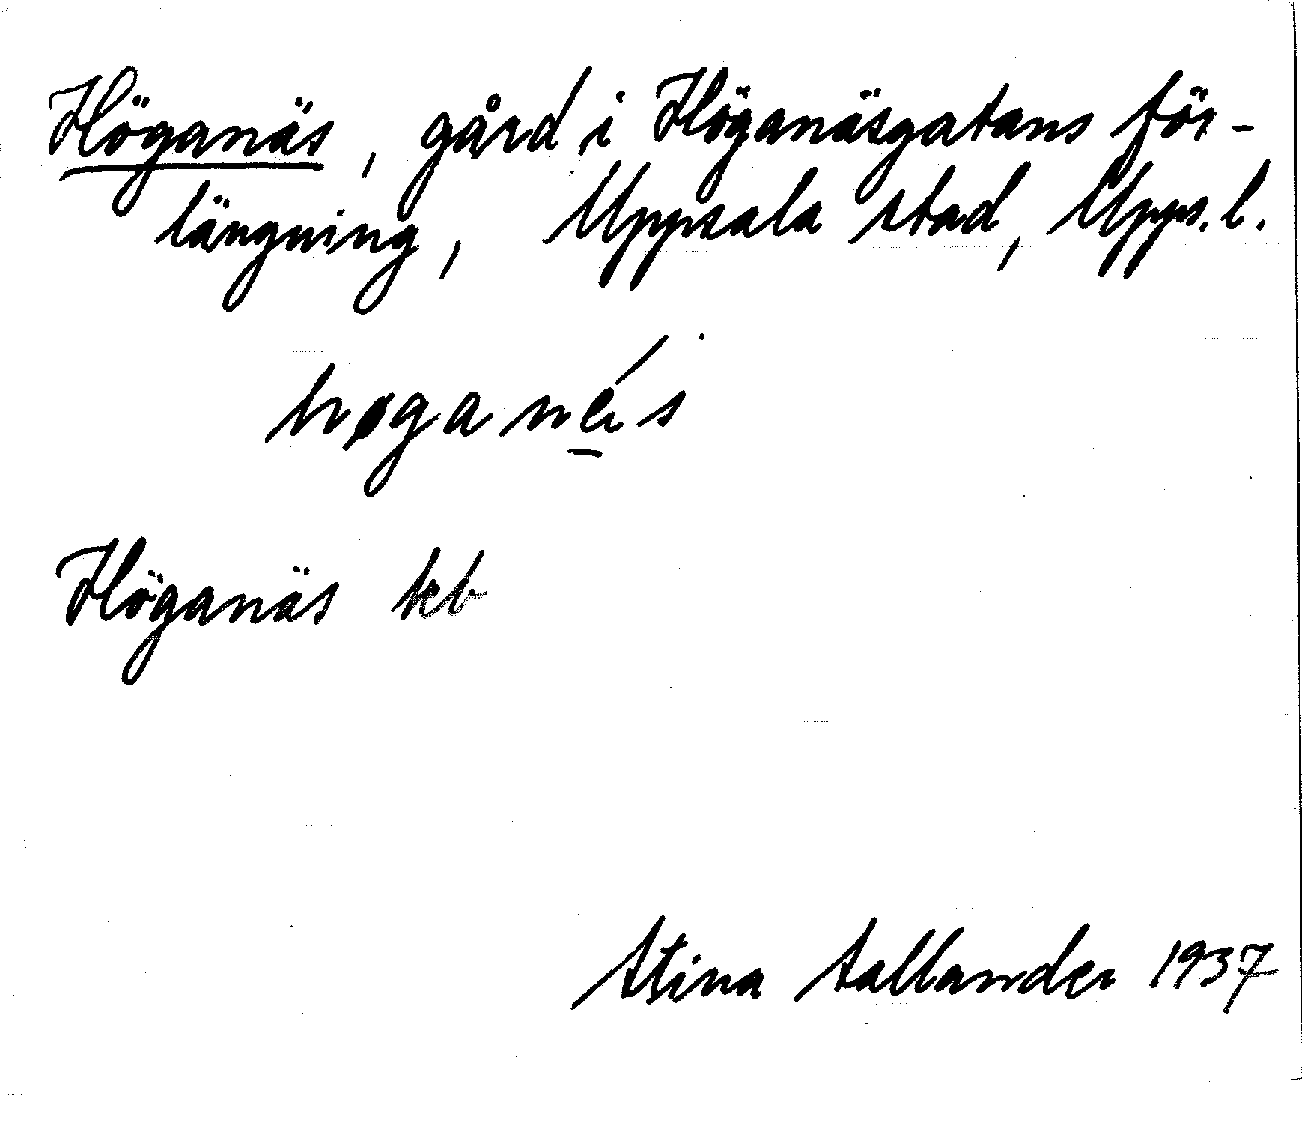 Höganäs, gård i Höganäsgatans för-
längning, Uppsala stad, Upps. l.
høganés
Höganäs tkb
Stina Sallander 1937